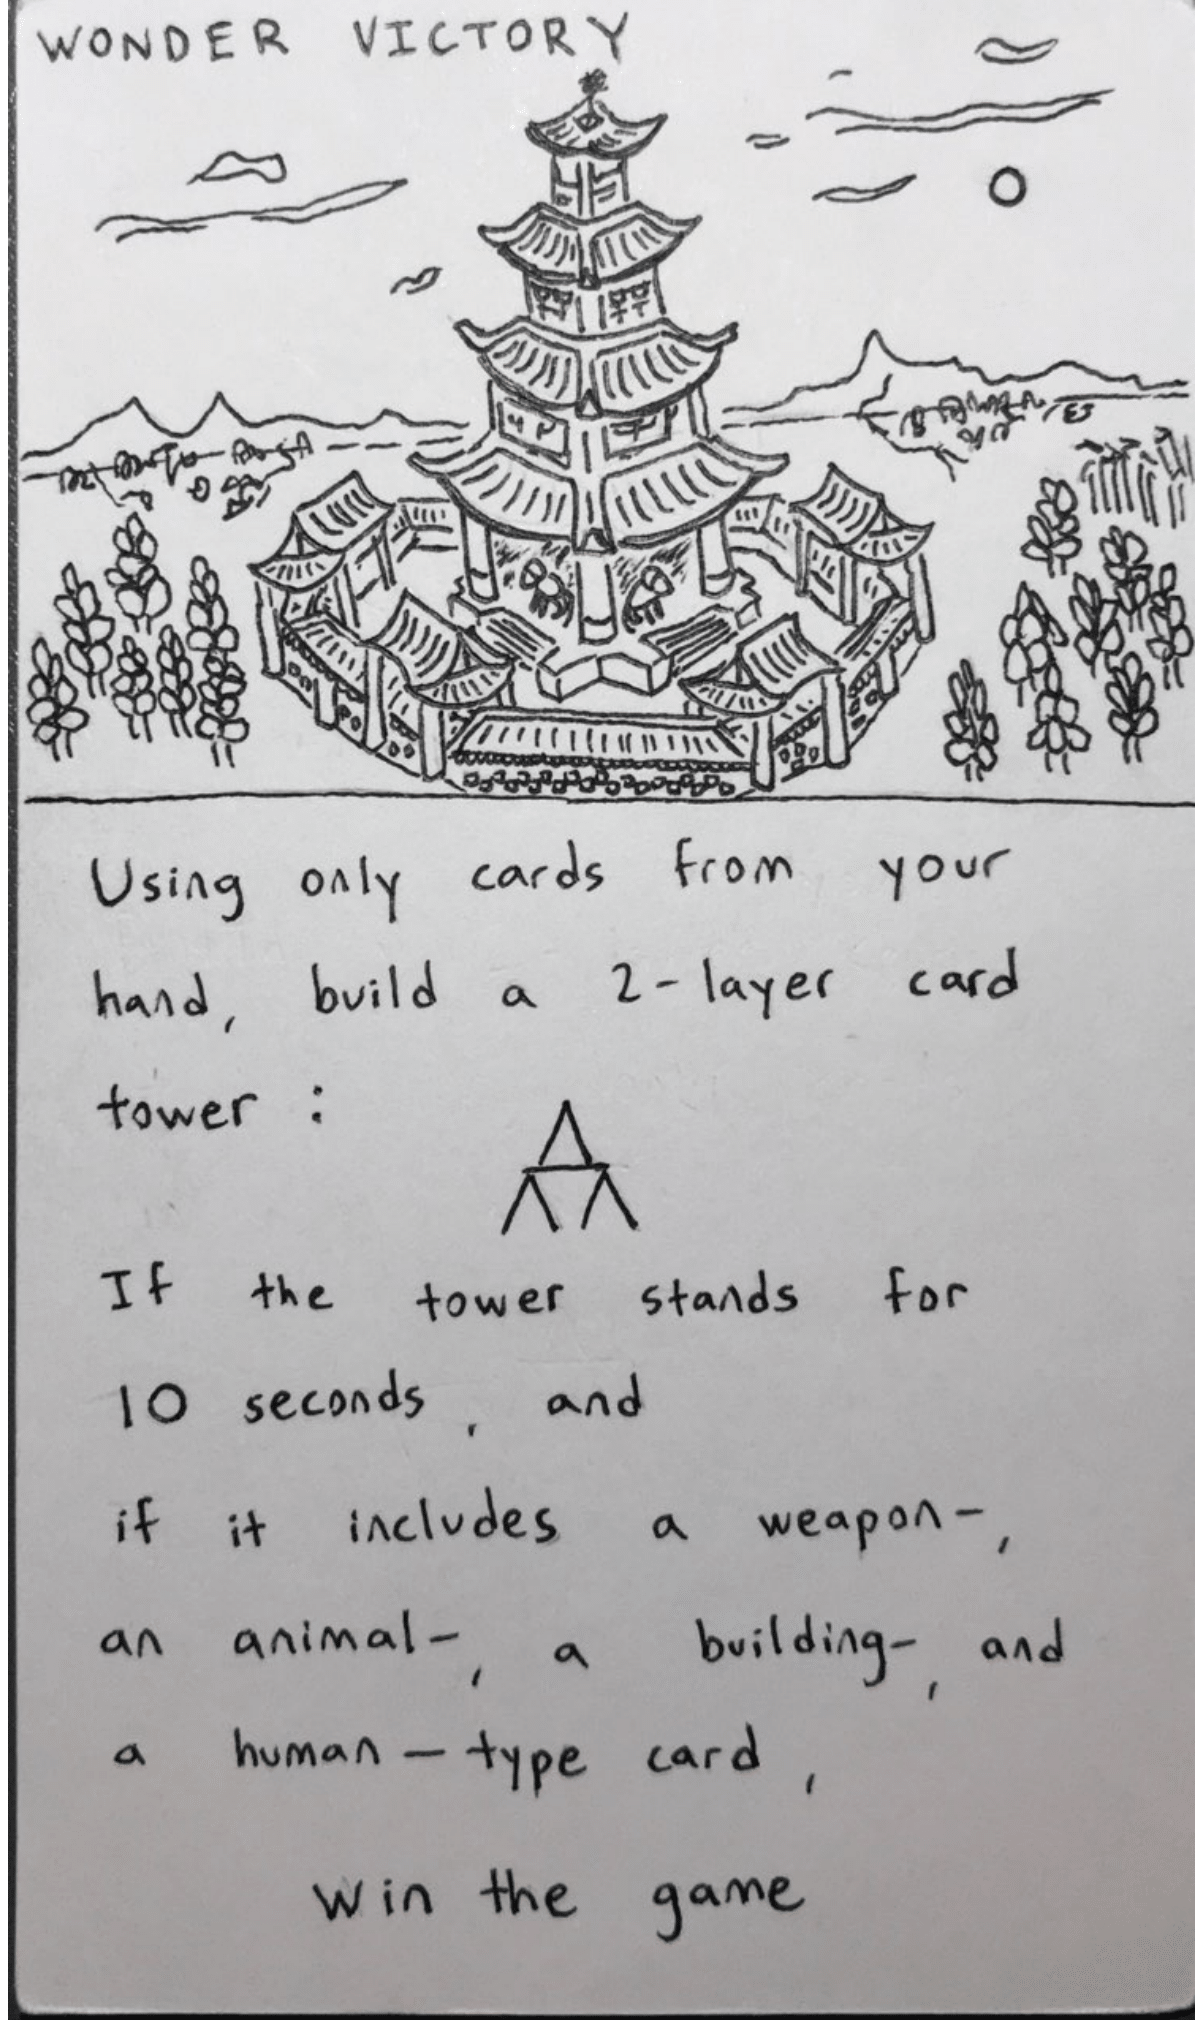 WONDER VICTORY
Using only cards from your
hand, build a 2-layer card
tower :
If the tower stands for
10 seconds, and
if it includes a weapon-,
an animal-, a building-, and
a human-type card,
win the game